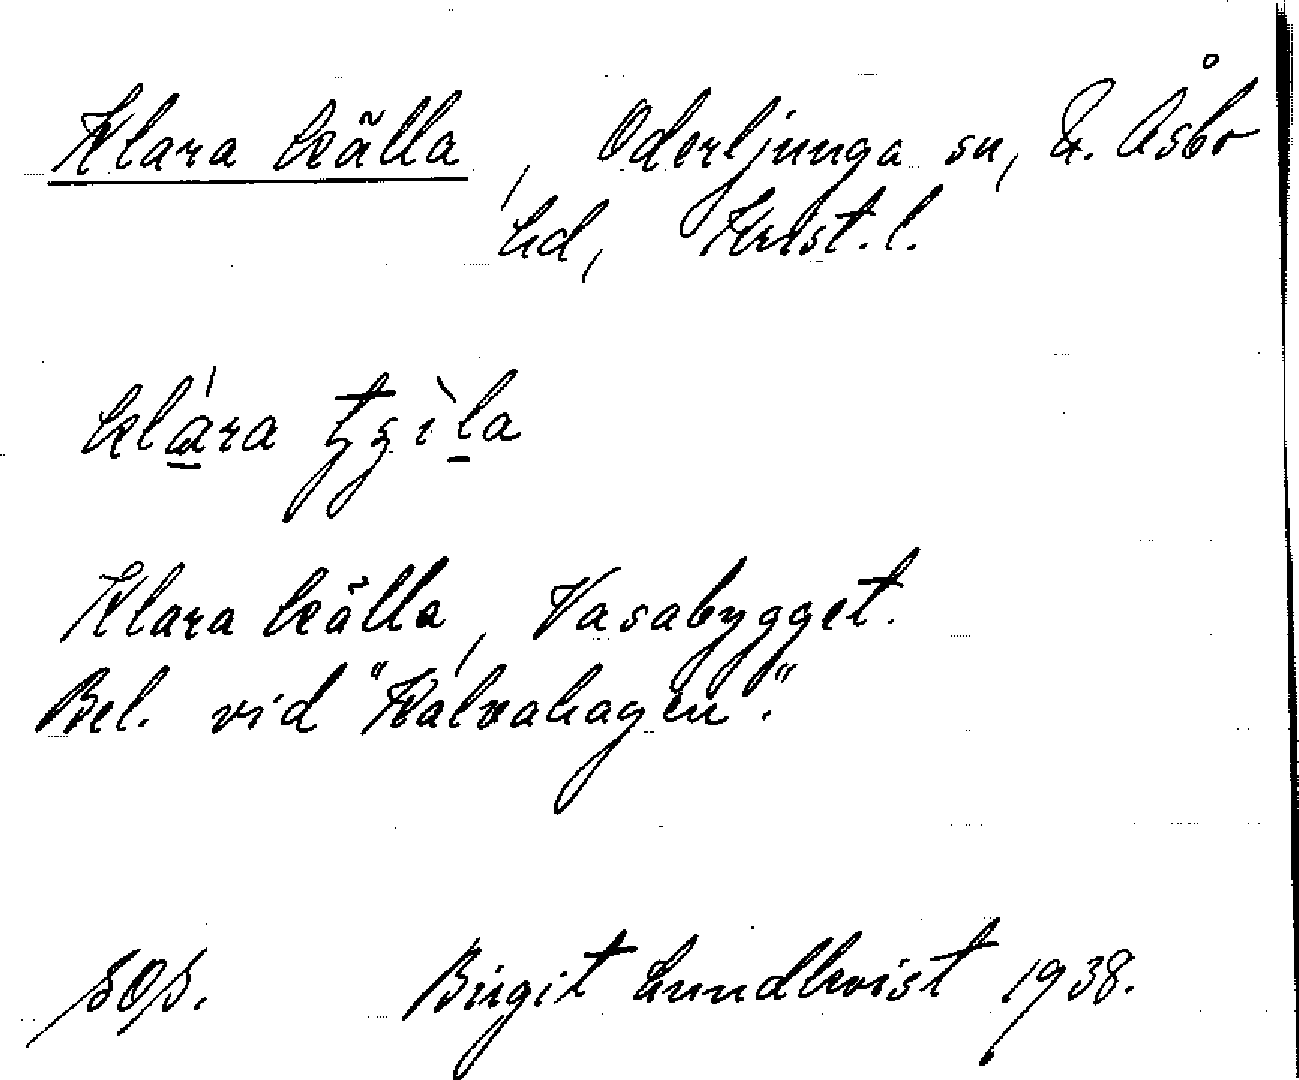 Klara källa, Oderljunga sn, N. Åsbo
hd, Krist. l.
klára tʒìla
Klara källa, Vasabygget.
Bel. vid "Kalvahagen".
SOS. Birgit Lundkvist 1938.